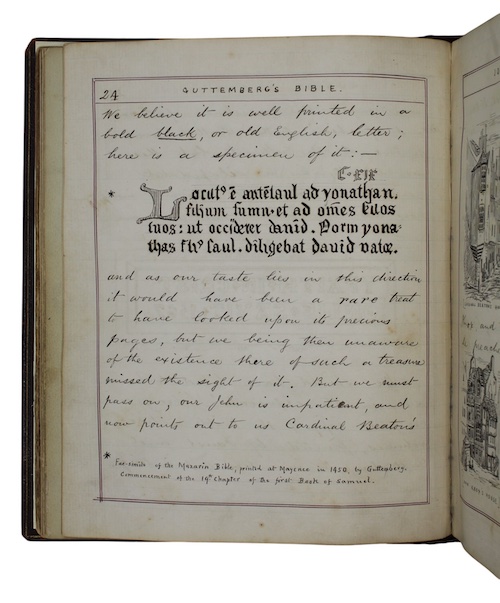 24 GUTTEMBERG'S BIBLE.
We believe it is well printed in a
bold black, or old English, letter;
here is a specimen of it:—
C·XIX
* Locut⁹ ē autē saul ad yonathan,
filium suum·et ad om̄es suos
suos: ut occideret dauid. Porro yona-
thas fil⁹ saul. diligebat dauid
and as our taste lies in this direction
it would have been a rare treat
to have looked upon its precious
pages, but we being then unaware
of the existence there of such a treasure
missed the sight of it. But we must
pass on, our John is impatient, and
now points out to us Cardinal Beaton's
*
Fac-simile of the Mazarin Bible, printed at Mayence in 1450, by Guttemberg.
Commencement of the 19th Chapter of the first Book of Samuel.